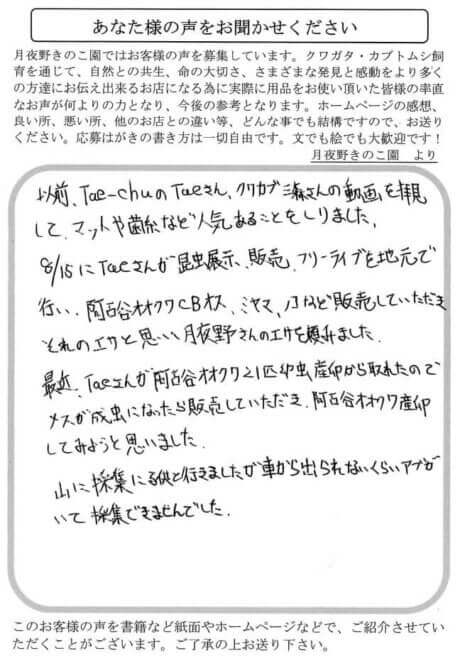 あなた様の声をお聞かせください
月夜野きのこ園ではお客様の声を募集しています。クワガタ・カブトムシ飼
育を通じて、自然との共生、命の大切さ、さまざまな発見と感動をより多く
の方達にお伝え出来るお店になる為に実際に用品をお使い頂いた皆様の率直
なお声が何よりの力となり、今後の参考となります。ホームページの感想、
良い所、悪い所、他のお店との違い等、どんな事でも結構ですので、お送り
ください。応募はがきの書き方は一切自由です。文でも絵でも大歓迎です！
月夜野きのこ園　より
以前、Tae-chuのTaeさん、クワカブ三森さんの動画を拝見
して、マットや菌糸など人気あることをしりました。
8/15にTaeさんが昆虫展示、販売、フリーライブを地元で
行い、阿古谷オオクワCBオス、ミヤマ、ノコなど販売していただき
それのエサと思い、月夜野さんのエサを頼みました。
最近、Taeさんが阿古谷オオクワ21匹幼虫産卵から取れたので
メスが成虫になったら販売していただき、阿古谷オオクワ産卵
してみようと思いました。
山に採集に子供と行きましたが車から出られないくらいアブが
いて採集できませんでした。
このお客様の声を書籍など紙面やホームページなどで、ご紹介させてい
ただくことがございます。ご了承の上お送り下さい。